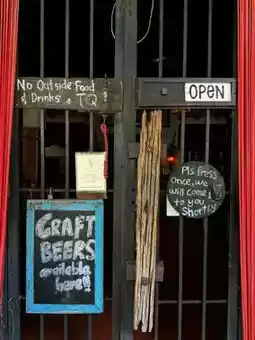 No Outside Food
& Drinks. TQ
OPEN
Pls Press
once, we
will come
to you
Shortly
CRAFT
BEERS
available
here!!